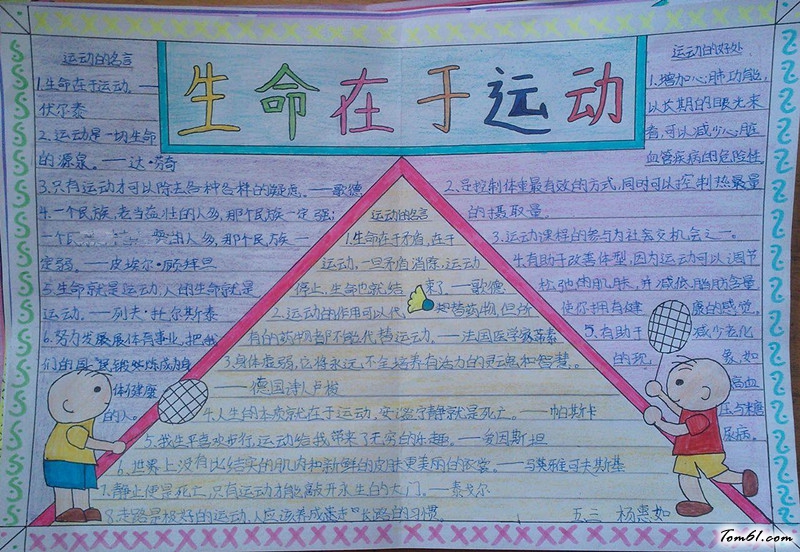 生命在于运动
运动的名言
1.生命在于运动。——
伏尔泰
2.运动是一切生命
的源泉。——达·芬奇
3.只有运动才可以除去各种各样的疑虑。——歌德
4.一个民族,老当益壮的人多,那个民族一定强;
一个民 人多,那个民族一
定弱。——皮埃尔·顾拜旦
5.生命就是运动,人的生命就是
运动。——列夫·托尔斯泰
6.努力发展展体育事业,把我
们的国 民锻 炼成为身
体健康
的人。
运动的名言
1.生命在于矛盾,在于
运动,一旦矛盾消除,运动
停止,生命也就结束了。——歌德
2.运动的作用可以代替药物,但所
有的药物都不能代替运动。——法国医学家蒂索
3.身体虚弱,它将永远不会培养有活力的灵魂和智慧。
——德国诗人卢梭
4.人生的本质就在于运动,安谧宁静就是死亡。——帕斯卡
5.我生平喜欢步行,运动给我带来了无穷的乐趣。——爱因斯坦
6.世界上没有比结实的肌肉和新鲜的皮肤更美丽的衣裳。——马雅可夫斯基
7.静止便是死亡,只有运动才能敲开永生的大门。——泰戈尔
8.走路是极好的运动,人应该养成走 长路的习惯。
五三 杨惠如
运动的好处
1.增加心肺功能,
以长期的眼光来
看,可以减少心脏
血管疾病的危险性
2.是控制体重最有效的方式,同时可以控制热量
的摄取量。
3.运动课程的参与为社会交机会之一。
4.有助于改善体型,因为运动可以调节
松弛的肌肤,并减低脂肪含量
使你拥有健康的感觉,
5.有助于 减少老化
的现 象,如
高血
压与糖
尿病。
Tom61.com